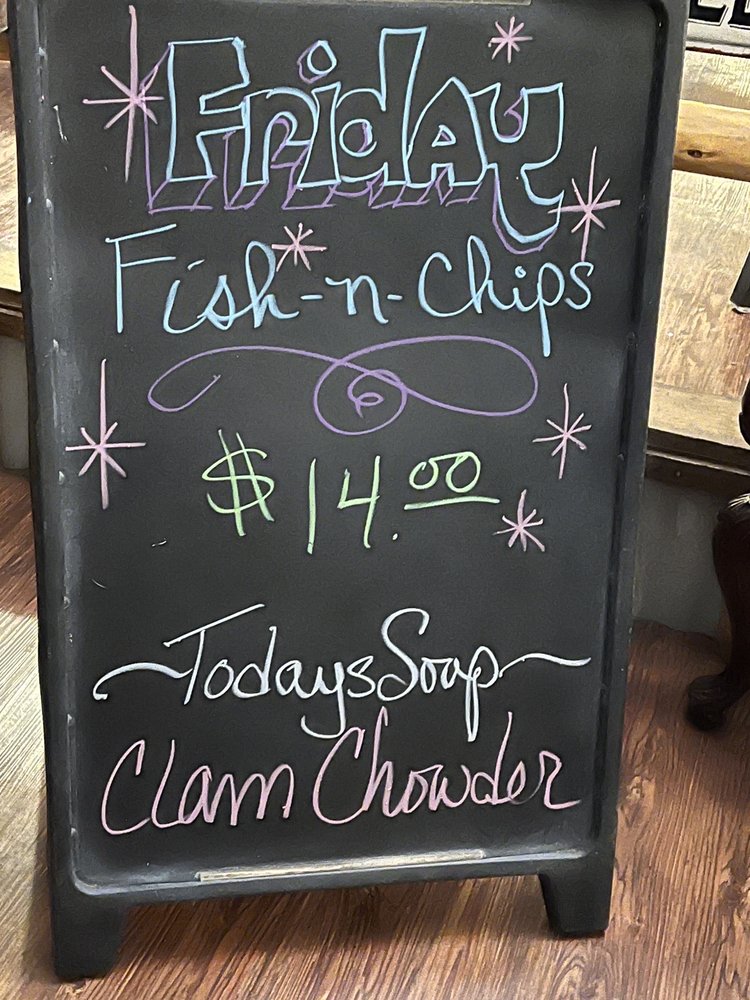 Friday
Fish-n-Chips
$14.00
~Todays Soap~
Clam Chowder